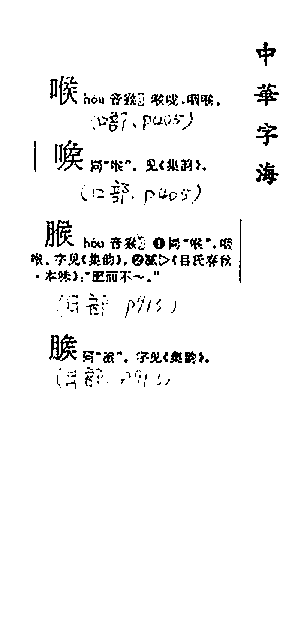 中華字海
喉 hóu 音猴 喉咙,咽喉。
(口部, p405)
㗋 同"喉"。见《集韵》。
(口部, p405)
㬋 hóu 音猴 ❶同"喉",咽
喉。字见《集韵》。❷腻▷《吕氏春秋
·本味》:"肥而不～。"
同"㬋"。字见《集韵》。